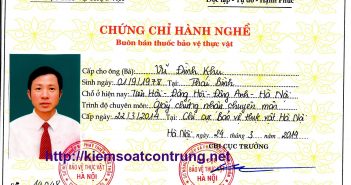 Độc lập - Tự do - Hạnh Phúc
CHỨNG CHỈ HÀNH NGHỀ
Buôn bán thuốc bảo vệ thực vật
Cấp cho ông (Bà): Vũ Đình Khu
Sinh ngày: 01/9/1978 Tại Thái Bình
Chỗ ở hiện nay: - Đông Hội - Đông Anh - Hà Nội
Trình độ chuyên môn: Giấy chứng nhận chuyên môn
Cấp ngày: 22/3/2014 Tại: Chi cục Bảo vệ thực vật Hà Nội
Hà Nội, ngày 24 tháng 3 năm 2014
CHI CỤC TRƯỞNG
http://kiemsoatcontrung.net
BẢO VỆ THỰC VẬT
HÀ NỘI